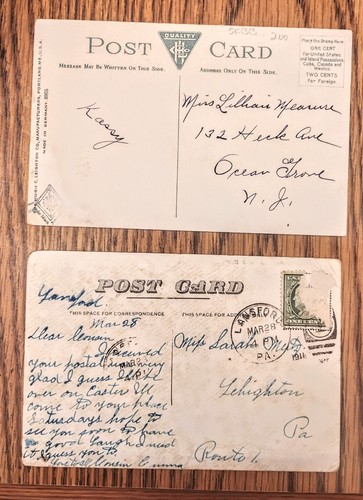 5CBC 200
POST CARD
QUALITY
MESSAGE MAY BE WRITTEN ON THIS SIDE.
ADDRESS ONLY ON THIS SIDE.
Place the Stamp Here
ONE CENT
For United States
and Island Possessions
Cuba, Canada and
Mexico
TWO CENTS
For Foreign
C. LEIGHTON CO., MANUFACTURERS, PORTLAND, ME., U.S.A.
MADE IN GERMANY.
Miss Lillian Measure
132 Heck Ave
Ocean Grove
N. J.
POST CARD
THIS SPACE FOR CORRESPONDENCE
THIS SPACE FOR ADDRESS
Lansford.
Mar 28
Dear Cousin
I received
your postal was very
glad I guess I
over on Easter Ill
come to your place
Saturdays hope to
see you soon to have
a good laugh I need
it I guess
Cousin Emma
LANSFORD
MAR 28
PA.
1911
ONE CENT
Miss Sarah
Lehighton
Pa
Route 1.